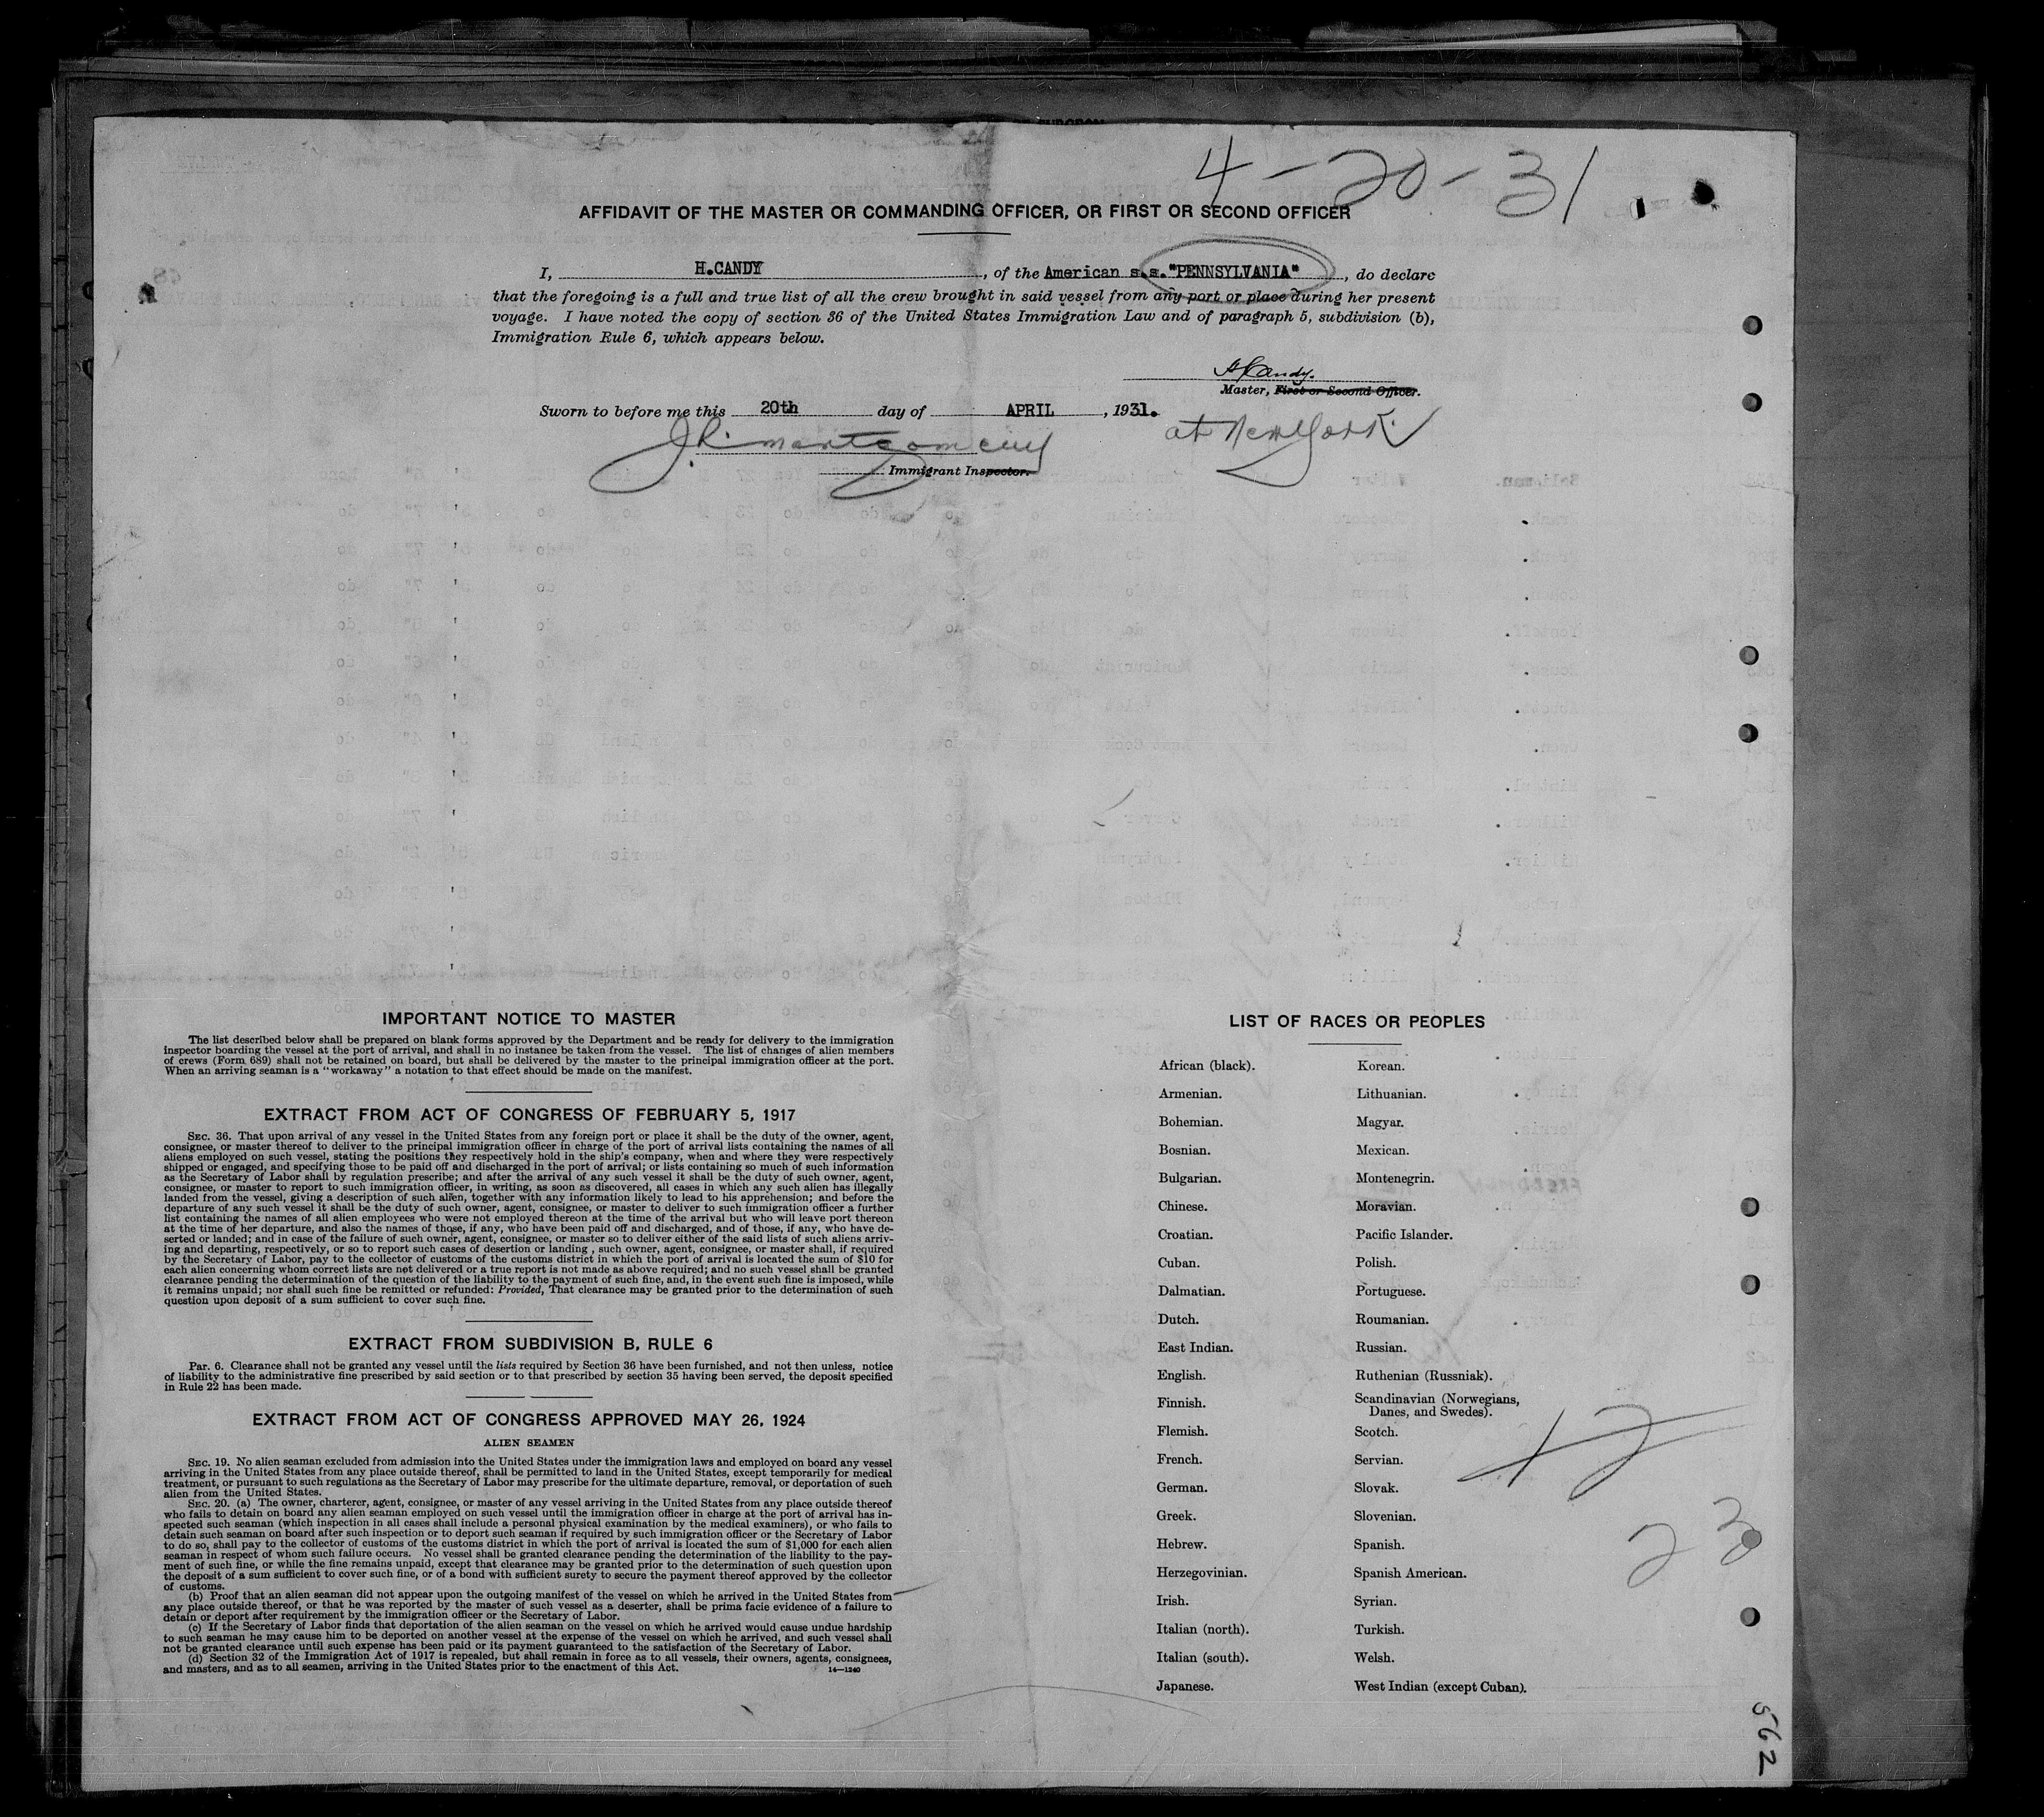 4-20-31
AFFIDAVIT OF THE MASTER OR COMMANDING OFFICER, OR FIRST OR SECOND OFFICER
I, H.CANDY, of the American s.s."PENNSYLVANIA", do declare
that the foregoing is a full and true list of all the crew brought in said vessel from any port or place during her present
voyage. I have noted the copy of section 36 of the United States Immigration Law and of paragraph 5, subdivision (b),
Immigration Rule 6, which appears below.
H Candy.
Master, First or Second Officer.
Sworn to before me this 20th day of APRIL, 1931.
at New York
J.R. Montgomery
Immigrant Inspector.
IMPORTANT NOTICE TO MASTER
The list described below shall be prepared on blank forms approved by the Department and be ready for delivery to the immigration
inspector boarding the vessel at the port of arrival, and shall in no instance be taken from the vessel. The list of changes of alien members
of crews (Form 689) shall not be retained on board, but shall be delivered by the master to the principal immigration officer at the port.
When an arriving seaman is a "workaway" a notation to that effect should be made on the manifest.
EXTRACT FROM ACT OF CONGRESS OF FEBRUARY 5, 1917
SEC. 36. That upon arrival of any vessel in the United States from any foreign port or place it shall be the duty of the owner, agent,
consignee, or master thereof to deliver to the principal immigration officer in charge of the port of arrival lists containing the names of all
aliens employed on such vessel, stating the positions they respectively hold in the ship's company, when and where they were respectively
shipped or engaged, and specifying those to be paid off and discharged in the port of arrival; or lists containing so much of such information
as the Secretary of Labor shall by regulation prescribe; and after the arrival of any such vessel it shall be the duty of such owner, agent,
consignee, or master to report to such immigration officer, in writing, as soon as discovered, all cases in which any such alien has illegally
landed from the vessel, giving a description of such alien, together with any information likely to lead to his apprehension; and before the
departure of any such vessel it shall be the duty of such owner, agent, consignee, or master to deliver to such immigration officer a further
list containing the names of all alien employees who were not employed thereon at the time of the arrival but who will leave port thereon
at the time of her departure, and also the names of those, if any, who have been paid off and discharged, and of those, if any, who have de-
serted or landed; and in case of the failure of such owner, agent, consignee, or master so to deliver either of the said lists of such aliens arriv-
ing and departing, respectively, or so to report such cases of desertion or landing , such owner, agent, consignee, or master shall, if required
by the Secretary of Labor, pay to the collector of customs of the customs district in which the port of arrival is located the sum of $10 for
each alien concerning whom correct lists are not delivered or a true report is not made as above required; and no such vessel shall be granted
clearance pending the determination of the question of the liability to the payment of such fine, and, in the event such fine is imposed, while
it remains unpaid; nor shall such fine be remitted or refunded: Provided, That clearance may be granted prior to the determination of such
question upon deposit of a sum sufficient to cover such fine.
EXTRACT FROM SUBDIVISION B, RULE 6
Par. 6. Clearance shall not be granted any vessel until the lists required by Section 36 have been furnished, and not then unless, notice
of liability to the administrative fine prescribed by said section or to that prescribed by section 35 having been served, the deposit specified
in Rule 22 has been made.
EXTRACT FROM ACT OF CONGRESS APPROVED MAY 26, 1924
ALIEN SEAMEN
SEC. 19. No alien seaman excluded from admission into the United States under the immigration laws and employed on board any vessel
arriving in the United States from any place outside thereof, shall be permitted to land in the United States, except temporarily for medical
treatment, or pursuant to such regulations as the Secretary of Labor may prescribe for the ultimate departure, removal, or deportation of such
alien from the United States.
SEC. 20. (a) The owner, charterer, agent, consignee, or master of any vessel arriving in the United States from any place outside thereof
who fails to detain on board any alien seaman employed on such vessel until the immigration officer in charge at the port of arrival has in-
spected such seaman (which inspection in all cases shall include a personal physical examination by the medical examiners), or who fails to
detain such seaman on board after such inspection or to deport such seaman if required by such immigration officer or the Secretary of Labor
to do so, shall pay to the collector of customs of the customs district in which the port of arrival is located the sum of $1,000 for each alien
seaman in respect of whom such failure occurs. No vessel shall be granted clearance pending the determination of the liability to the pay-
ment of such fine, or while the fine remains unpaid, except that clearance may be granted prior to the determination of such question upon
the deposit of a sum sufficient to cover such fine, or of a bond with sufficient surety to secure the payment thereof approved by the collector
of customs.
(b) Proof that an alien seaman did not appear upon the outgoing manifest of the vessel on which he arrived in the United States from
any place outside thereof, or that he was reported by the master of such vessel as a deserter, shall be prima facie evidence of a failure to
detain or deport after requirement by the immigration officer or the Secretary of Labor.
(c) If the Secretary of Labor finds that deportation of the alien seaman on the vessel on which he arrived would cause undue hardship
to such seaman he may cause him to be deported on another vessel at the expense of the vessel on which he arrived, and such vessel shall
not be granted clearance until such expense has been paid or its payment guaranteed to the satisfaction of the Secretary of Labor.
(d) Section 32 of the Immigration Act of 1917 is repealed, but shall remain in force as to all vessels, their owners, agents, consignees,
and masters, and as to all seamen, arriving in the United States prior to the enactment of this Act.
14—1240
LIST OF RACES OR PEOPLES
African (black). Korean.
Armenian. Lithuanian.
Bohemian. Magyar.
Bosnian. Mexican.
Bulgarian. Montenegrin.
Chinese. Moravian.
Croatian. Pacific Islander.
Cuban. Polish.
Dalmatian. Portuguese.
Dutch. Roumanian.
East Indian. Russian.
English. Ruthenian (Russniak).
Finnish. Scandinavian (Norwegians,
Danes, and Swedes).
Flemish. Scotch.
French. Servian.
German. Slovak.
Greek. Slovenian.
Hebrew. Spanish.
Herzegovinian. Spanish American.
Irish. Syrian.
Italian (north). Turkish.
Italian (south). Welsh.
Japanese. West Indian (except Cuban).
12
23
562